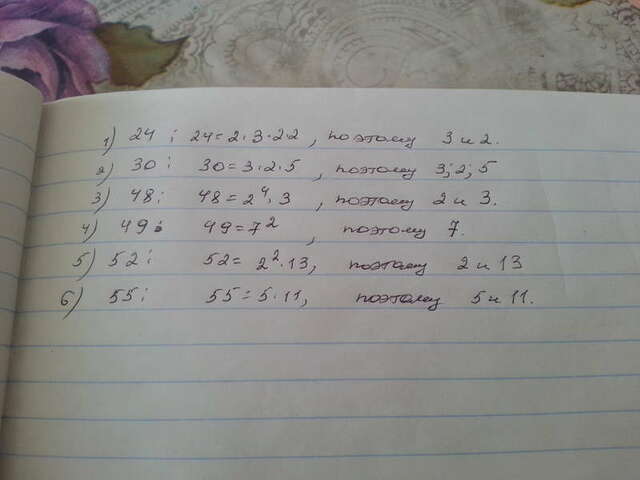 1) 24; 24=2·3·2·2, поэтому 3 и 2.
2) 30; 30=3·2·5, поэтому 3; 2; 5
3) 48; 48=2⁴·3, поэтому 2 и 3.
4) 49; 49=7², поэтому 7.
5) 52; 52=2²·13, поэтому 2 и 13
6) 55; 55=5·11, поэтому 5 и 11.